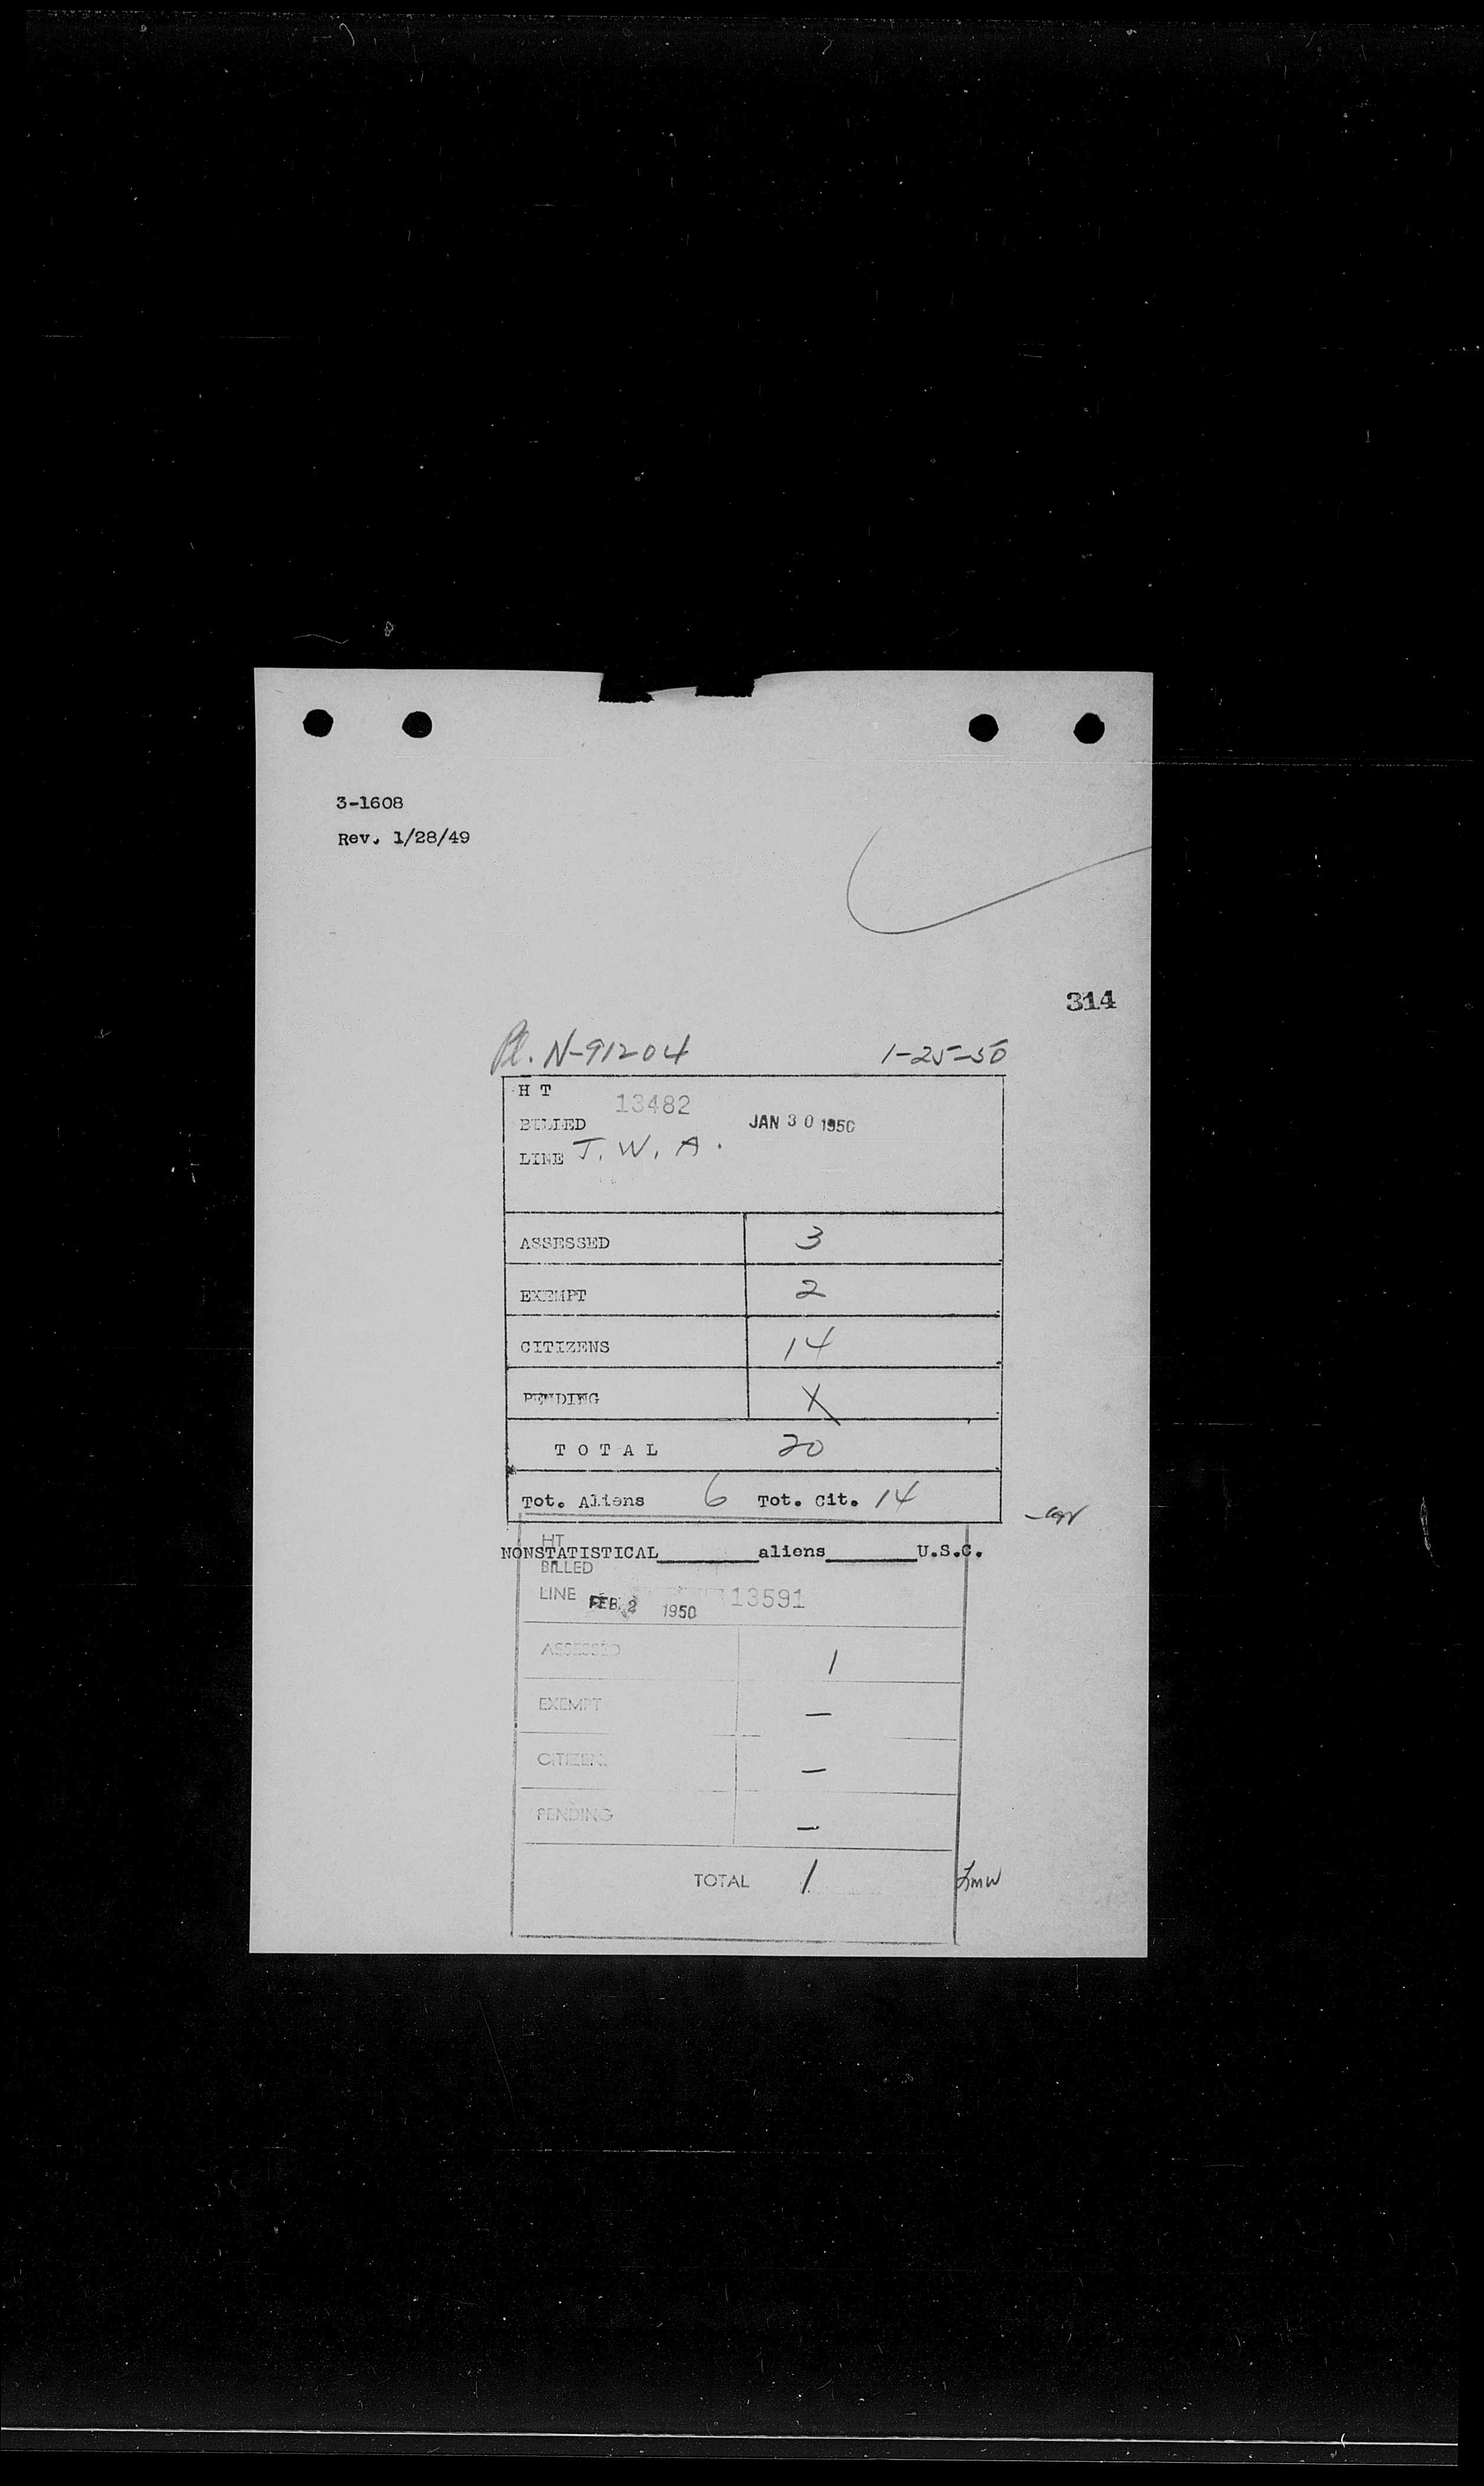 3-1608
Rev. 1/28/49
314
Pl. N-91204 1-25-50
H T
13482
BILLED JAN 30 1950
LINE T. W. A.
ASSESSED 3
EXEMPT 2
CITIZENS 14
PENDING X
T O T A L 20
Tot. Aliens 6 Tot. Cit. 14
HT
NONSTATISTICAL________aliens_______U.S.C.
BILLED
LINE FEB 2 1950 13591
ASSESSED 1
EXEMPT –
CITIZENS –
PENDING –
TOTAL 1